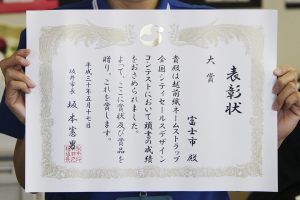 表彰状
大賞
富士市 殿
貴殿は越前織ネームストラップ
全国シティセールスデザイン
コンテストにおいて頭書の成績
をおさめられました
よって、ここに賞状及び賞品を
贈り、これを賞します。
平成三十年五月十七日
坂井市長 坂本憲男